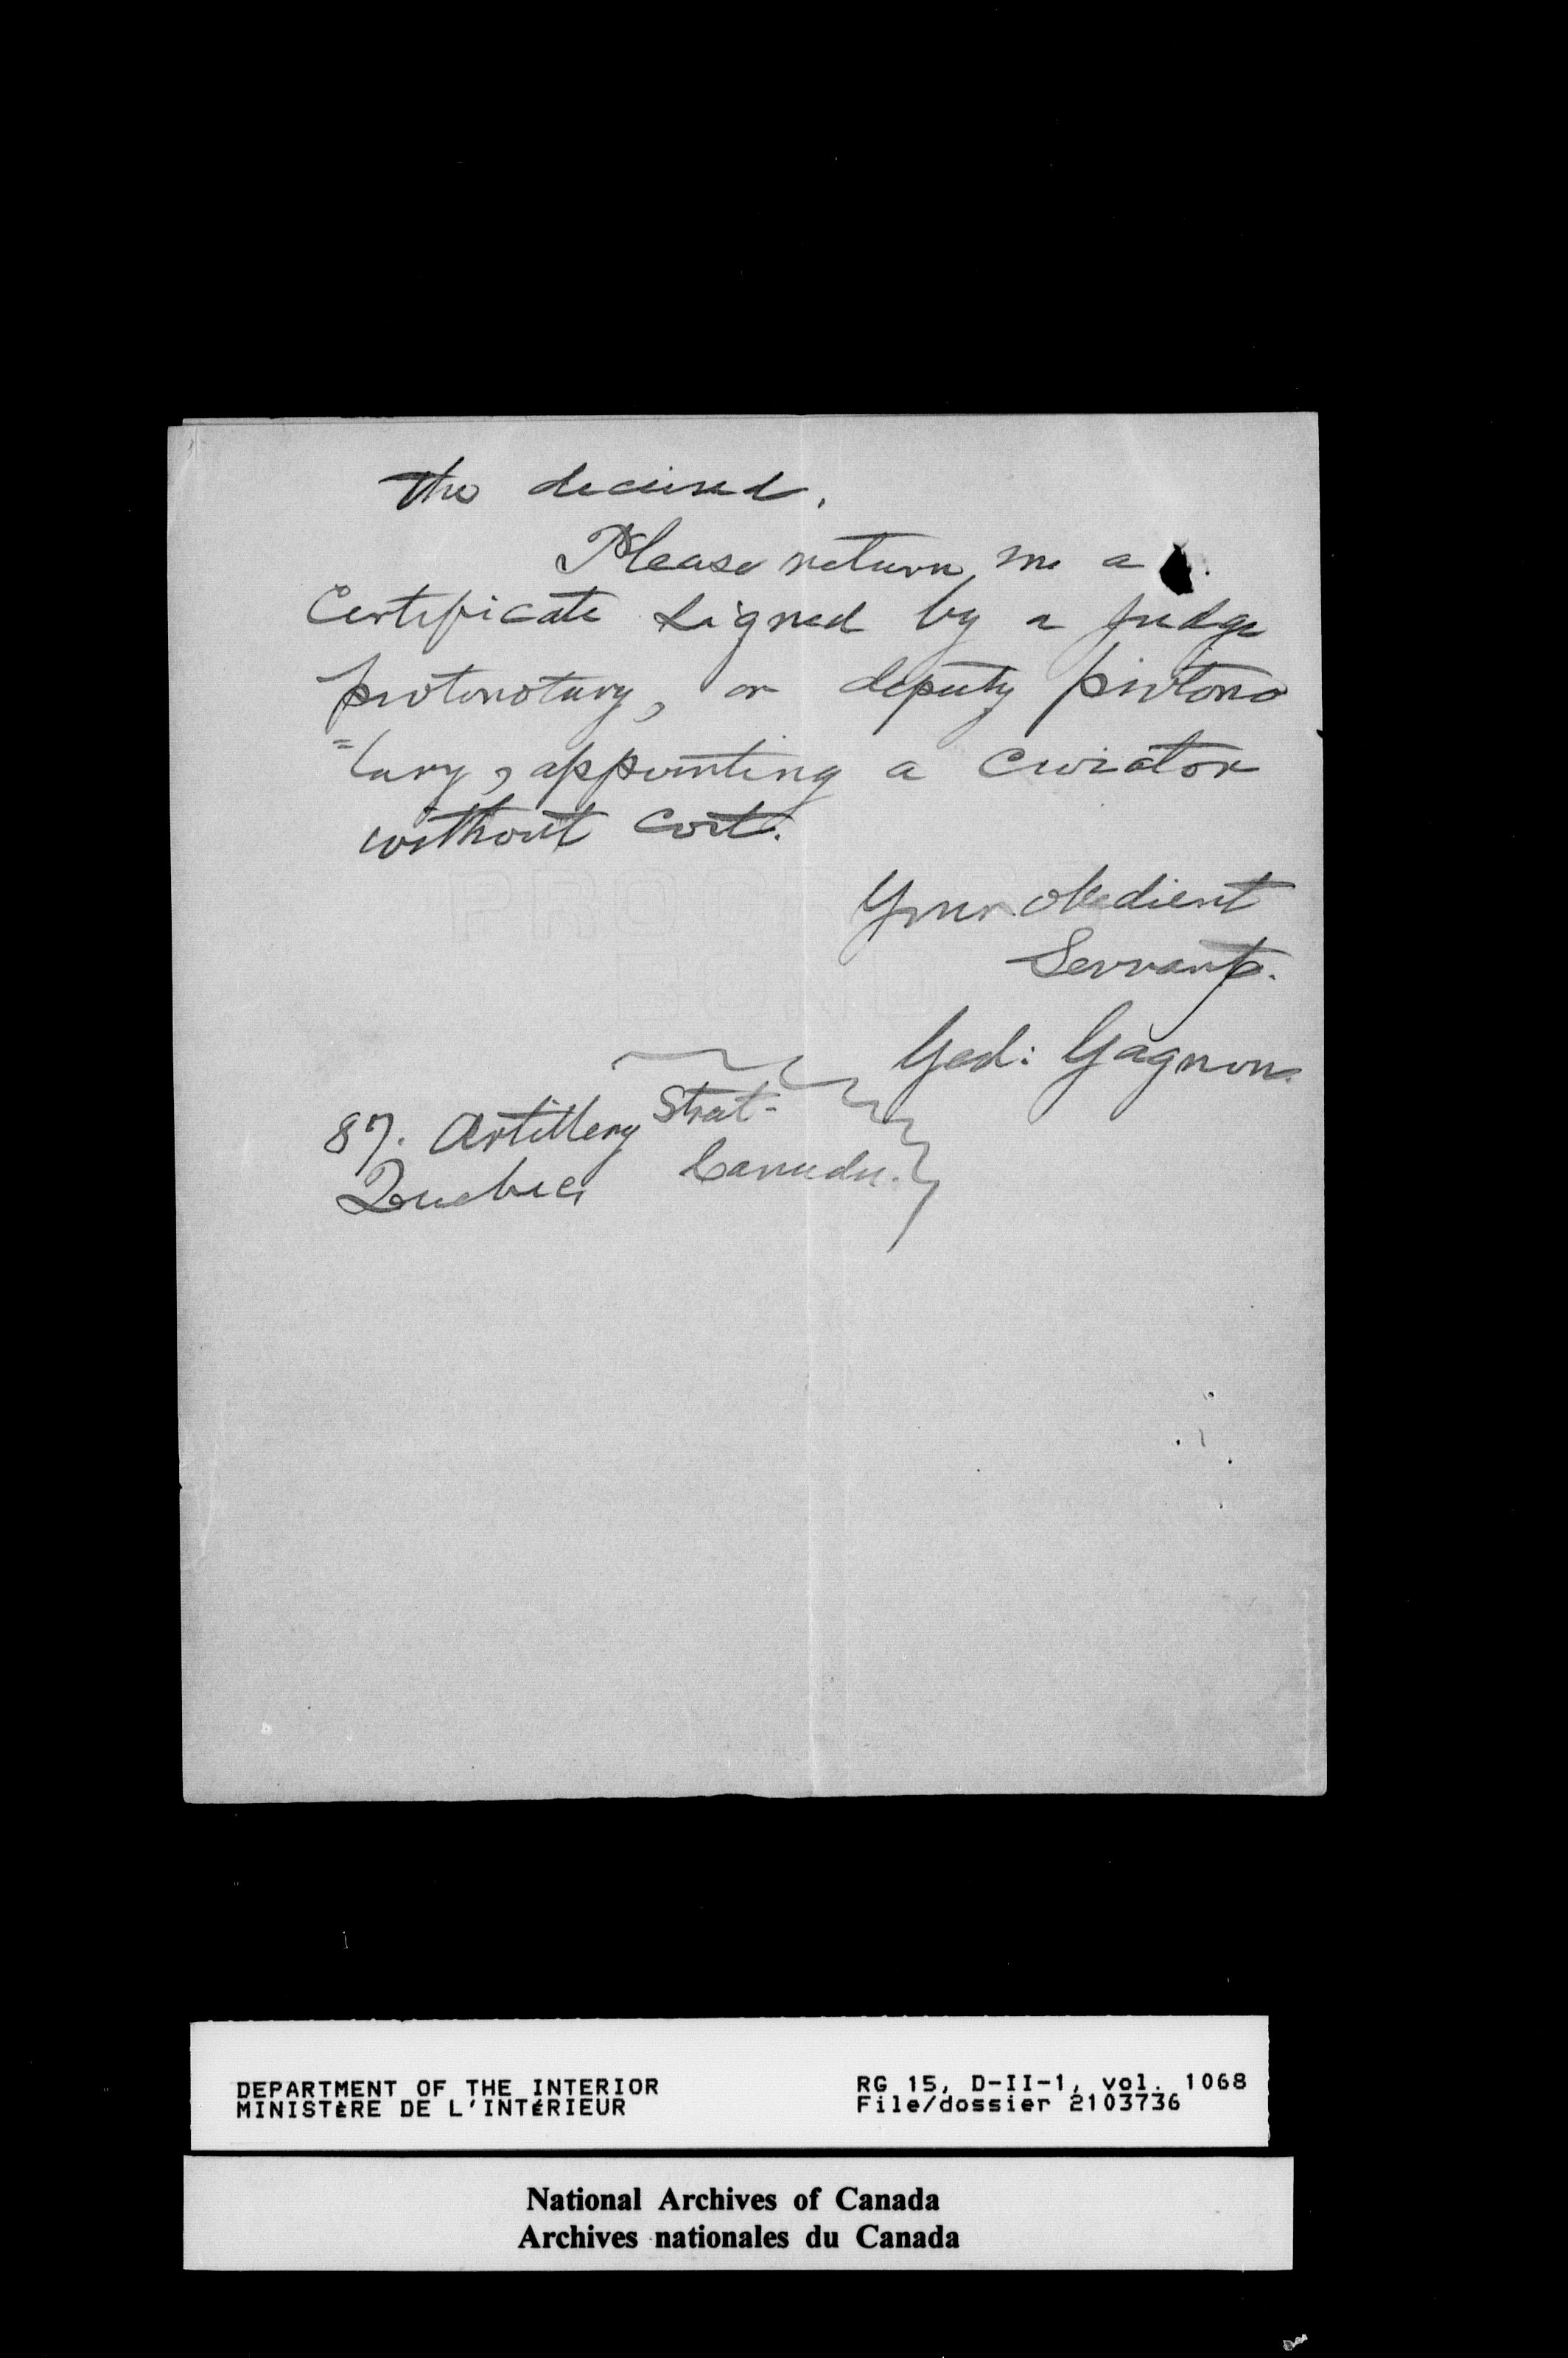 the deceised.
Please return me a
Certificate signed by a judge
protonotary, or deputy protono
=tary, appointing a curator
without cost.
Your obedient
Servant.
Ged: Gagnon.
87. Artillery Street-
Quebec, Canada.
DEPARTMENT OF THE INTERIOR RG 15, D-II-1, vol. 1068
MINISTÈRE DE L'INTÉRIEUR File/dossier 2103736
National Archives of Canada
Archives nationales du Canada